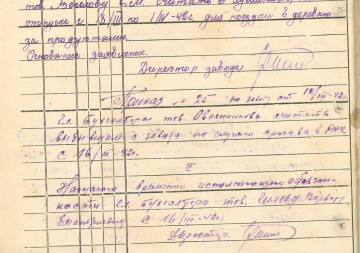 отпуске с 18/III по 1/IV-42г. для поездки в деревню
за продуктами.
Основание заявление.
Директор завода
Приказ № 25 по заводу от 16/III-42г.
Гл. бухгалтера тов. Овсянникова считать
выбывшим с завода по случаю призыва в РККА
с 16/III-42г.
II
Назначаю временно исполняющим обязан-
ности гл. бухгалтера тов.
с 16/III-42г.
Директор